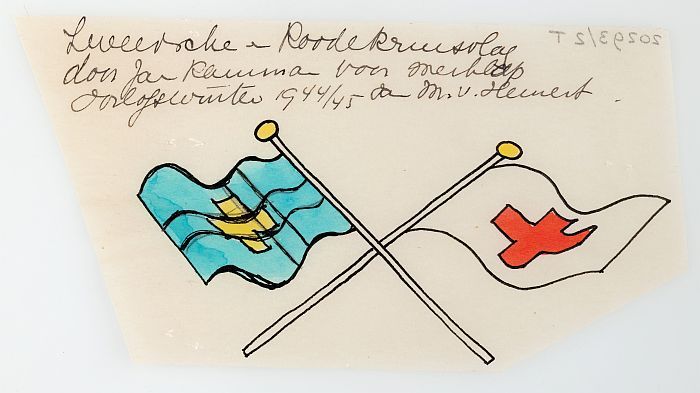 Zweedsche en Roodekruisvlag
door Jan Kamman voor merklap
oorlogswinter 1944/45 van M. v. Hemert.
20293/2 T